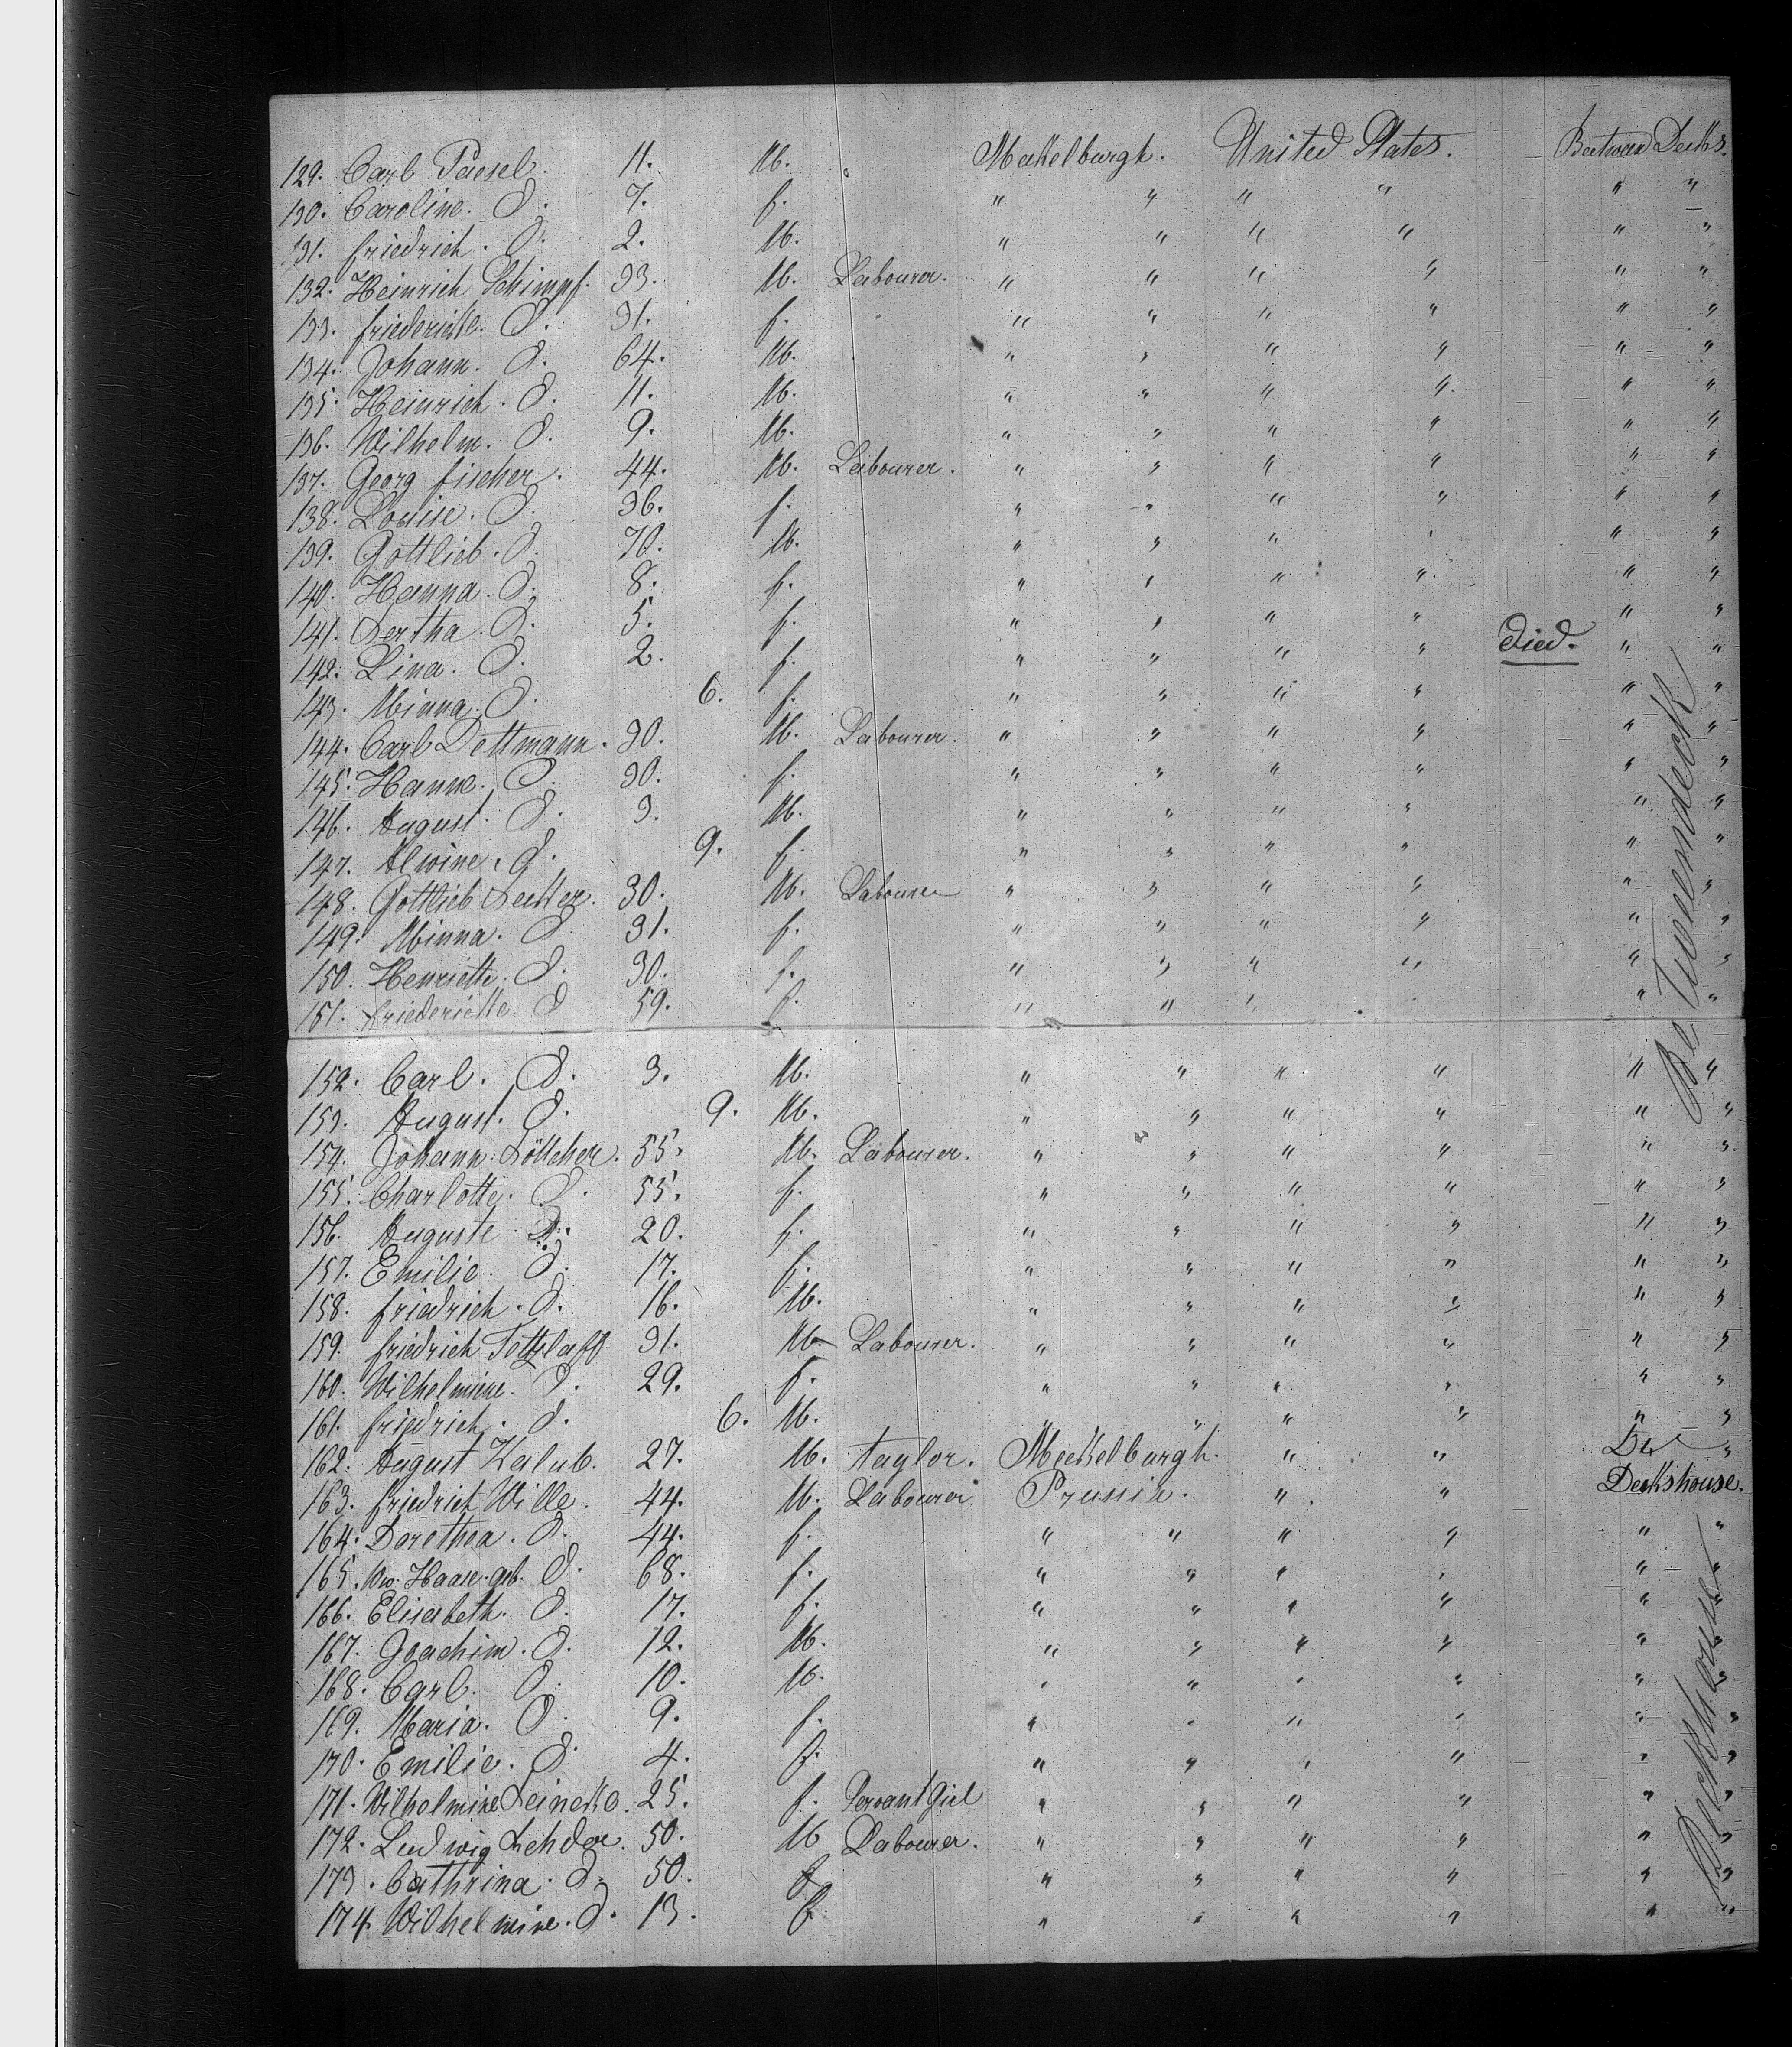 129. Carl Paesel. 11. M. Mekelburgh. United States. Beetween Decks.
130. Caroline. d. 7. f. " " " " " "
131. friedrich. d. 2. M. " " " " " "
132. Heinrich Schimpf. 33. M. Labourer. " " " " " "
133. friederiette. d. 31. f. " " " " " "
134. Johann. d. 64. M. " " " " " "
135. Heinrich. d. 11. M. " " " " " "
136. Wilhelm. d. 9. M. " " " " " "
137. Georg fischer. 44. M. Labourer. " " " " " "
138. Louise. d. 36. f. " " " " " "
139. Gottlieb. d. 70. M. " " " " " "
140. Hanna. d. 8. f. " " " " " "
141. Bertha. d. 5. f. " " " " " "
142. Lina. d. 2. f. " " " " died. " "
143. Minna. d. 6. f. " " " " " "
144. Carl Dettmann. 30. M. Labourer. " " " " " "
145. Hanne. d. 30. f. " " " " " "
146. August. d. 3. M. " " " " " "
147. Alwine. d. 9. f. " " " " " "
148. Gottlieb 30. M. Labourer " " " " " "
149. Minna. d. 31. f. " " " " " "
150. Henriette. d. 30. f. " " " " " "
151. friederiette. d 59. f. " " " " " "
Betweendeck
152. Carl. d. 3. M. " " " " " "
153. August. d. 9. M. " " " " " "
154. Johann Böttcher. 55. M. Labourer. " " " " " "
155. Charlotte. d. 55. f. " " " " " "
156. Auguste d. 20. f. " " " " " "
157. Emilie. d. 17. f. " " " " " "
158. friedrich. d. 16. M. " " " " " "
159. friedrich Tettzlaff 31. M. Labourer. " " " " " "
160. Wilhelmine. d. 29. f. " " " " " "
161. friedrich. d. 6. M. " " " " " "
162. August Kalub. 27. M. taylor. Mekelburgh. " " "
163. friedrich Wille. 44. M. Labourer Prussia. " " Deckshouse.
164. Dorethea. d. 44. f. " " " " " "
165. Ww. Haase. geb. d. 68. f. " " " " " "
166. Elisabeth. d. 17. f. " " " " " "
167. Joachim. d. 12. M. " " " " " "
168. Carl. d. 10. M. " " " " " "
169. Maria. d. 9. f. " " " " " "
170. Emilie. d. 4. f. " " " " " "
171. Wilhelmine 25. f. Servant Girl " " " " " "
172. Ludwig 50. M Labourer. " " " " " "
173. Cathrina. d. 50. f " " " " " "
174. Wilhelmine. d. 13. f. " " " " " "
Deckhouse